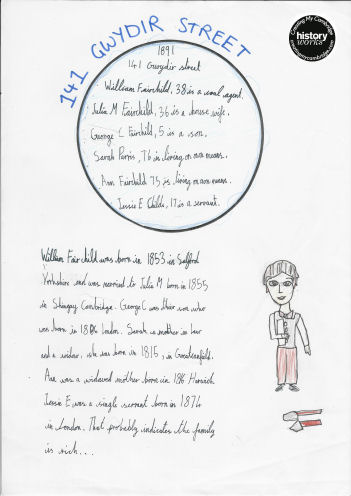 141 GWYDIR STREET
Creating My Cambridge
history
works
creatingmycambridge.com
1891
141 Gwydir street
William Fairchild, 38 is a coal agent.
Julia M Fairchild, 36 is a house wife.
George C Fairchild, 5 is a son.
Sarah Parris, 76 is living on own means.
Ann Fairchild 75 is living on own means.
Jessie E Childs, 17 is a servant.
William Fairchild was born in 1853 in
Yorkshire and was married to Julia M born in 1855
in Shingay Cambridge. George C was their son who
was born in London. Sarah is mother in law
and a widow, she was born in 1815, in
Ann was a widowed mother born in Harwich
Jessie E was a single servant born in 1874
in London. That probably indicates the family
is rich...